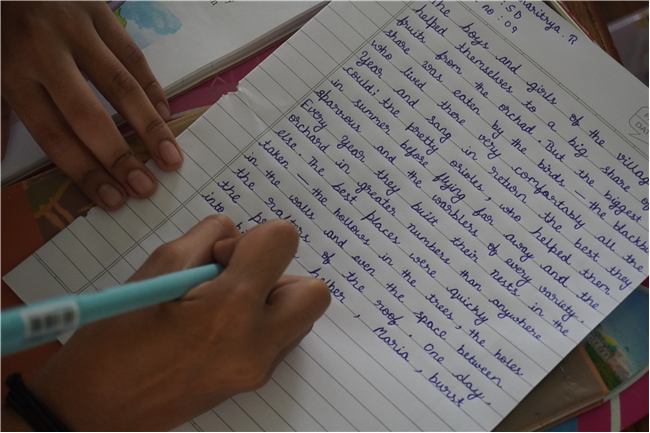 aritrya. R
: 5D
no : 09
The boys and girls of the villag
helped themselves to a big share of
fruits from the orchad. But the biggest
share was eaten by the birds – the blackb
who lived there very comfortably all the
Year and sang in return the best they
could: the pretty oriols, who helped them
in summer before flying far away and the
sparrous and the warblers of every variety.
Every Year they built their nests in the
orchard in greater numbers than anywhere
else. The best places were quickly
taken – the hollows in the trees, the holes
in the walls and even the space between
the rafters of the roof. One day,
the , Maria, burst
into